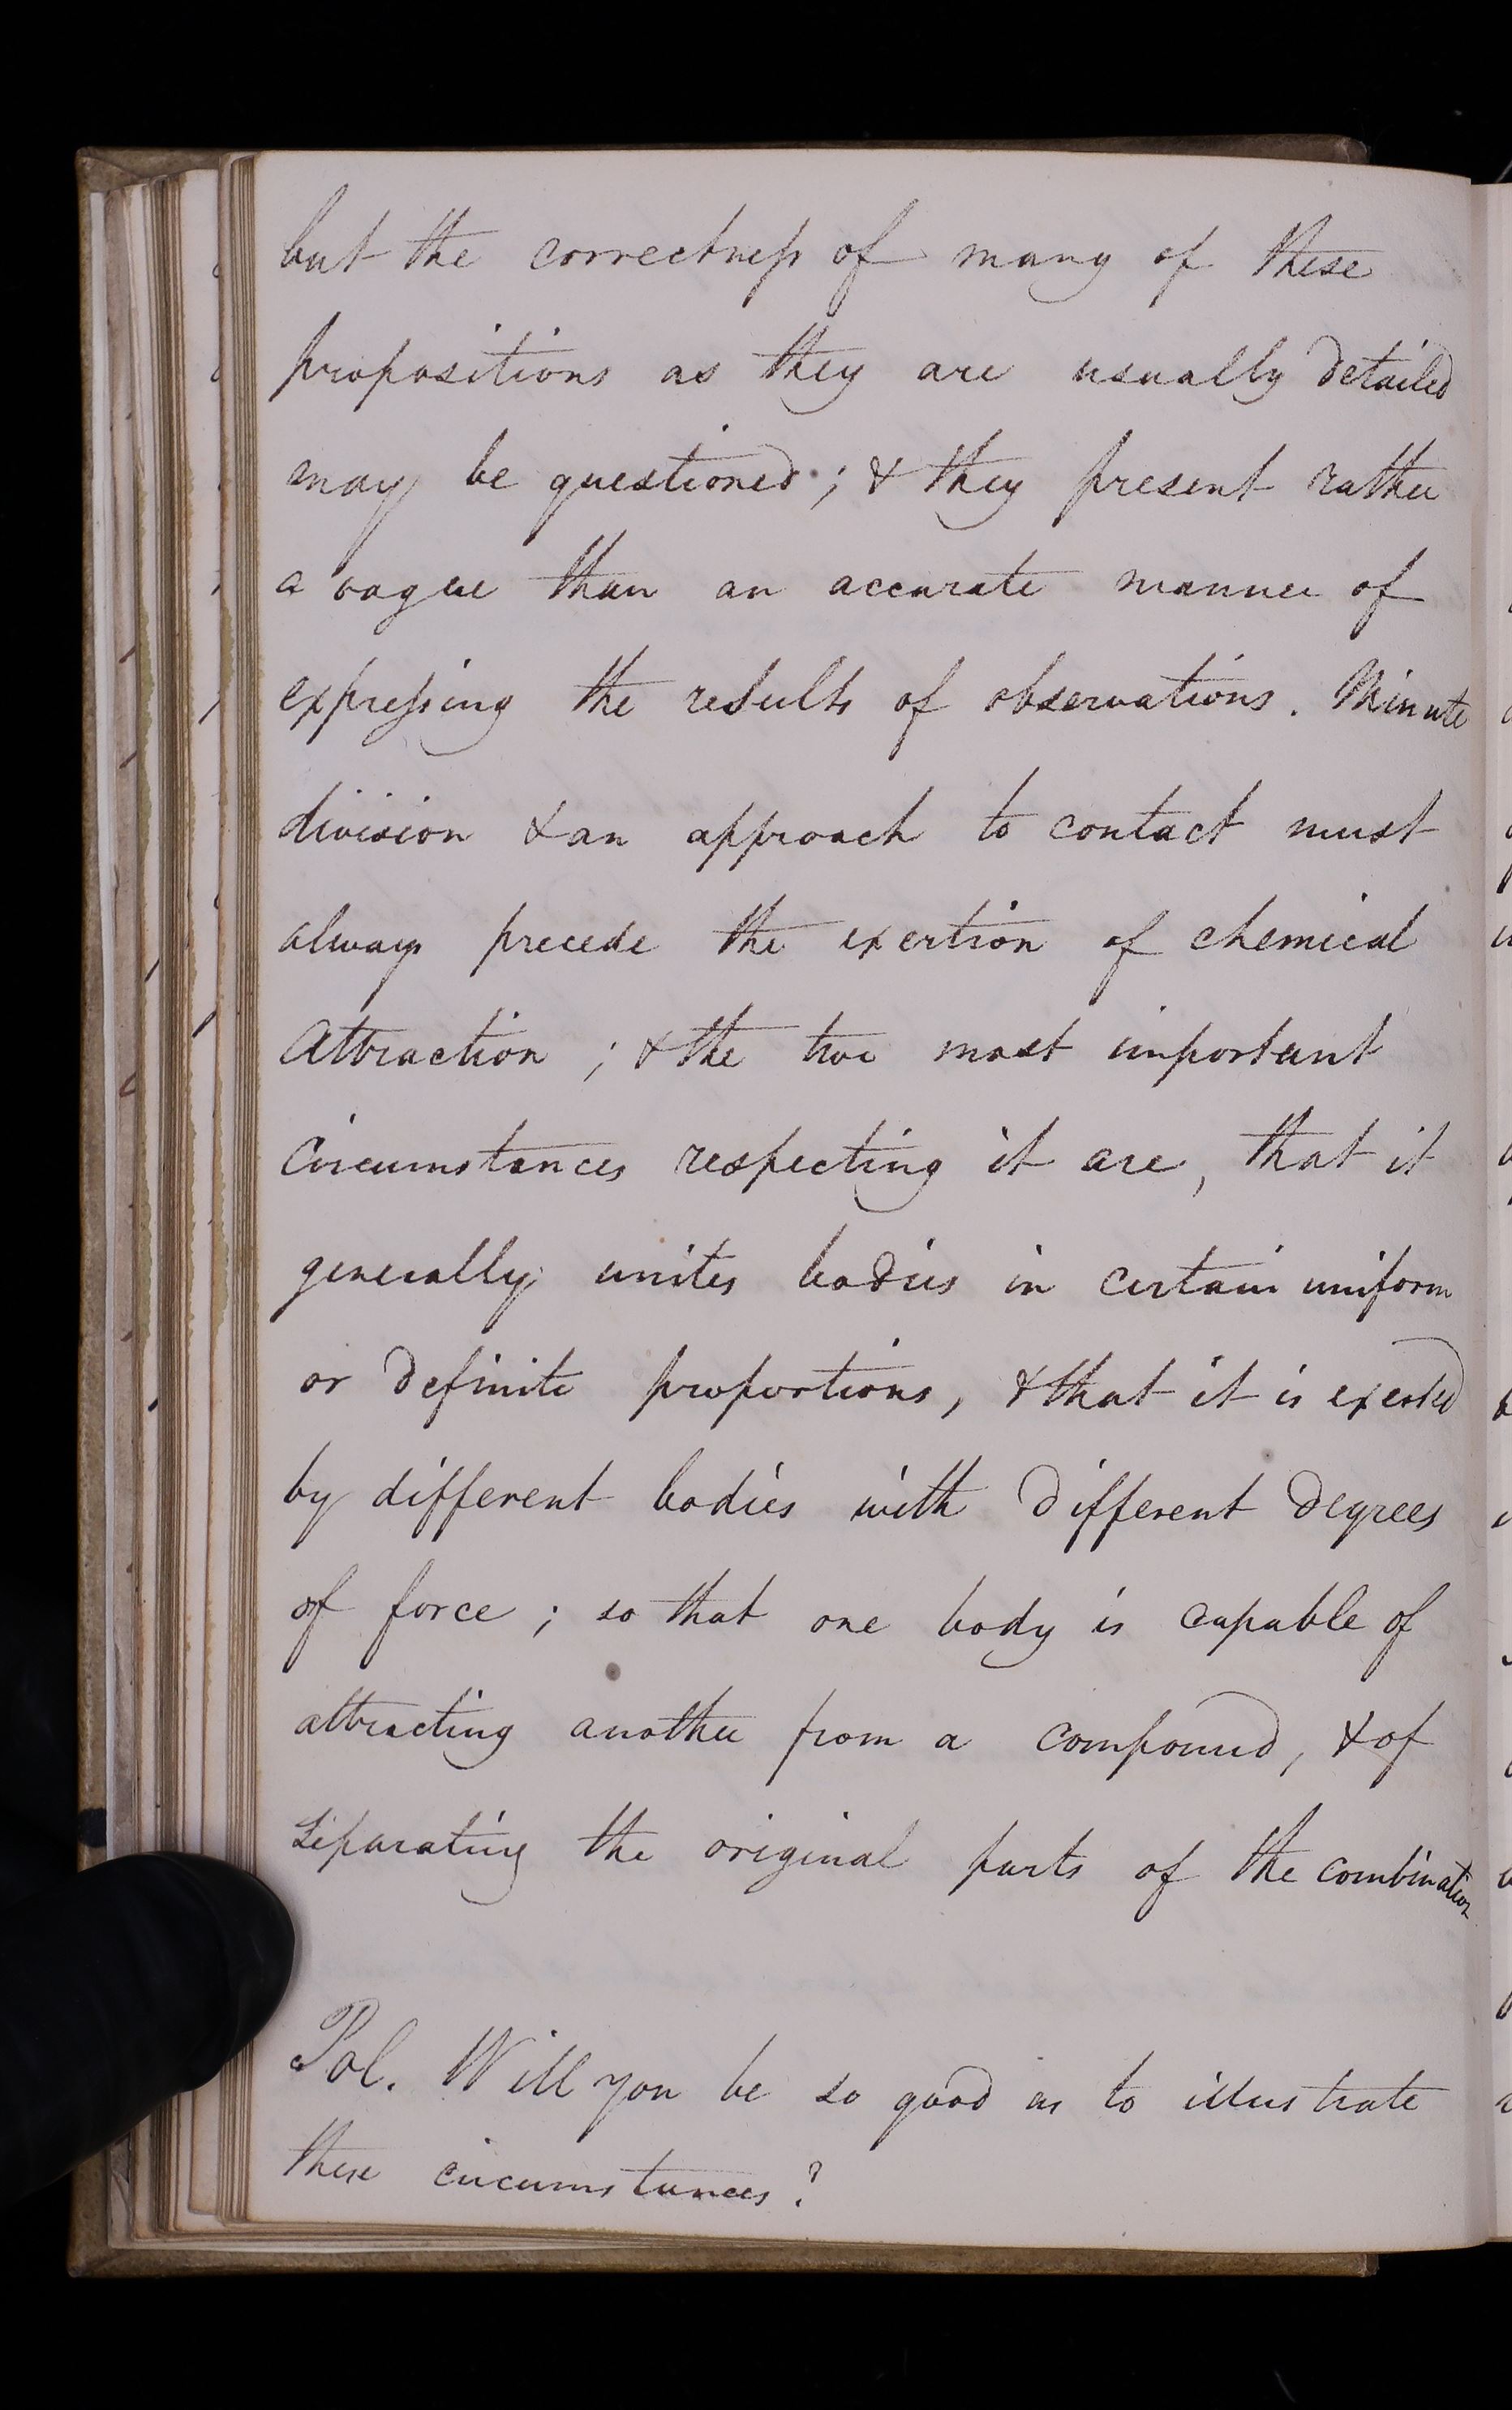 but the correctness of many of these
propositions as they are usually detailed
may be questioned; & they present rather
a vague than an accurate manner of
expressing the results of observations. Minute
division & an approach to contact must
always precede the exertion of chemical
Attraction; & the two most important
Circumstances respecting it are, that it
generally unites bodies in certain uniform
or definite proportions, & that it is exerted
by different bodies with different degrees
of force; so that one body is capable of
attracting another from a compound, & of
separating the original parts of the combination
Pol. Will you be so good as to illustrate
these circumstances?